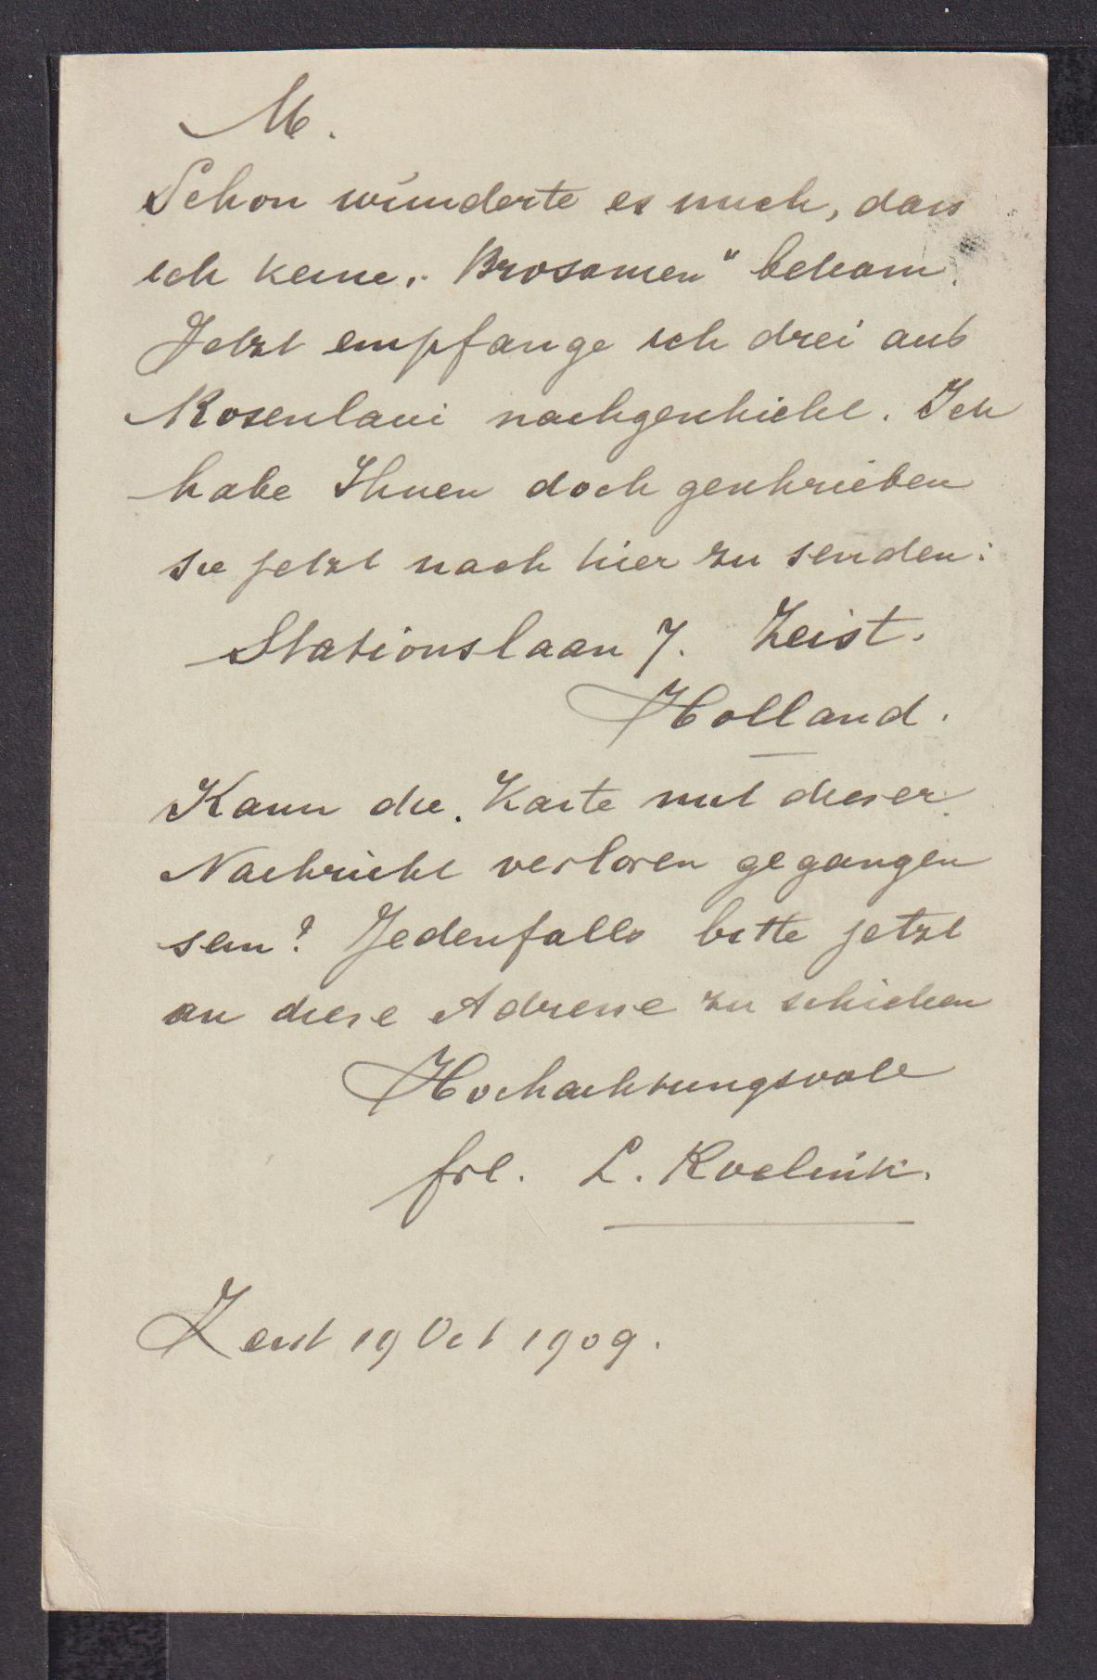 M.
Schon wunderte es mich, dass
ich keine „Brosamen" bekam.
Jetzt empfange ich drei aus
Rosenlaui nachgeschickt. Ich
habe Ihnen doch geschrieben
sie jetzt nach hier zu senden:
Stationslaan 7. Zeist.
Holland.
Kann die Karte mit dieser
Nachricht verloren gegangen
sein? Jedenfalls bitte jetzt
an diese Adresse zu schicken
Hochachtungsvoll
frl. L. Roelink.
Zeist 19 Oct 1909.